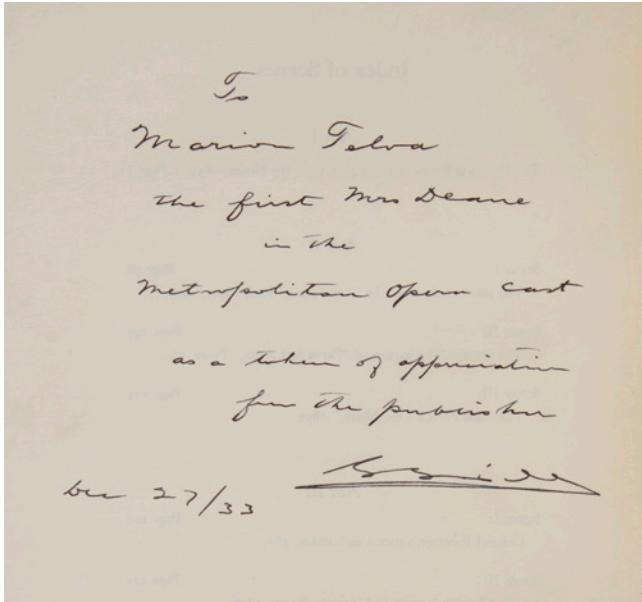 To
Marion Telva
the first Mrs Deane
in the
Metropolitan Opera Cast
as a token of appreciation
from the publisher
Dec 27/33